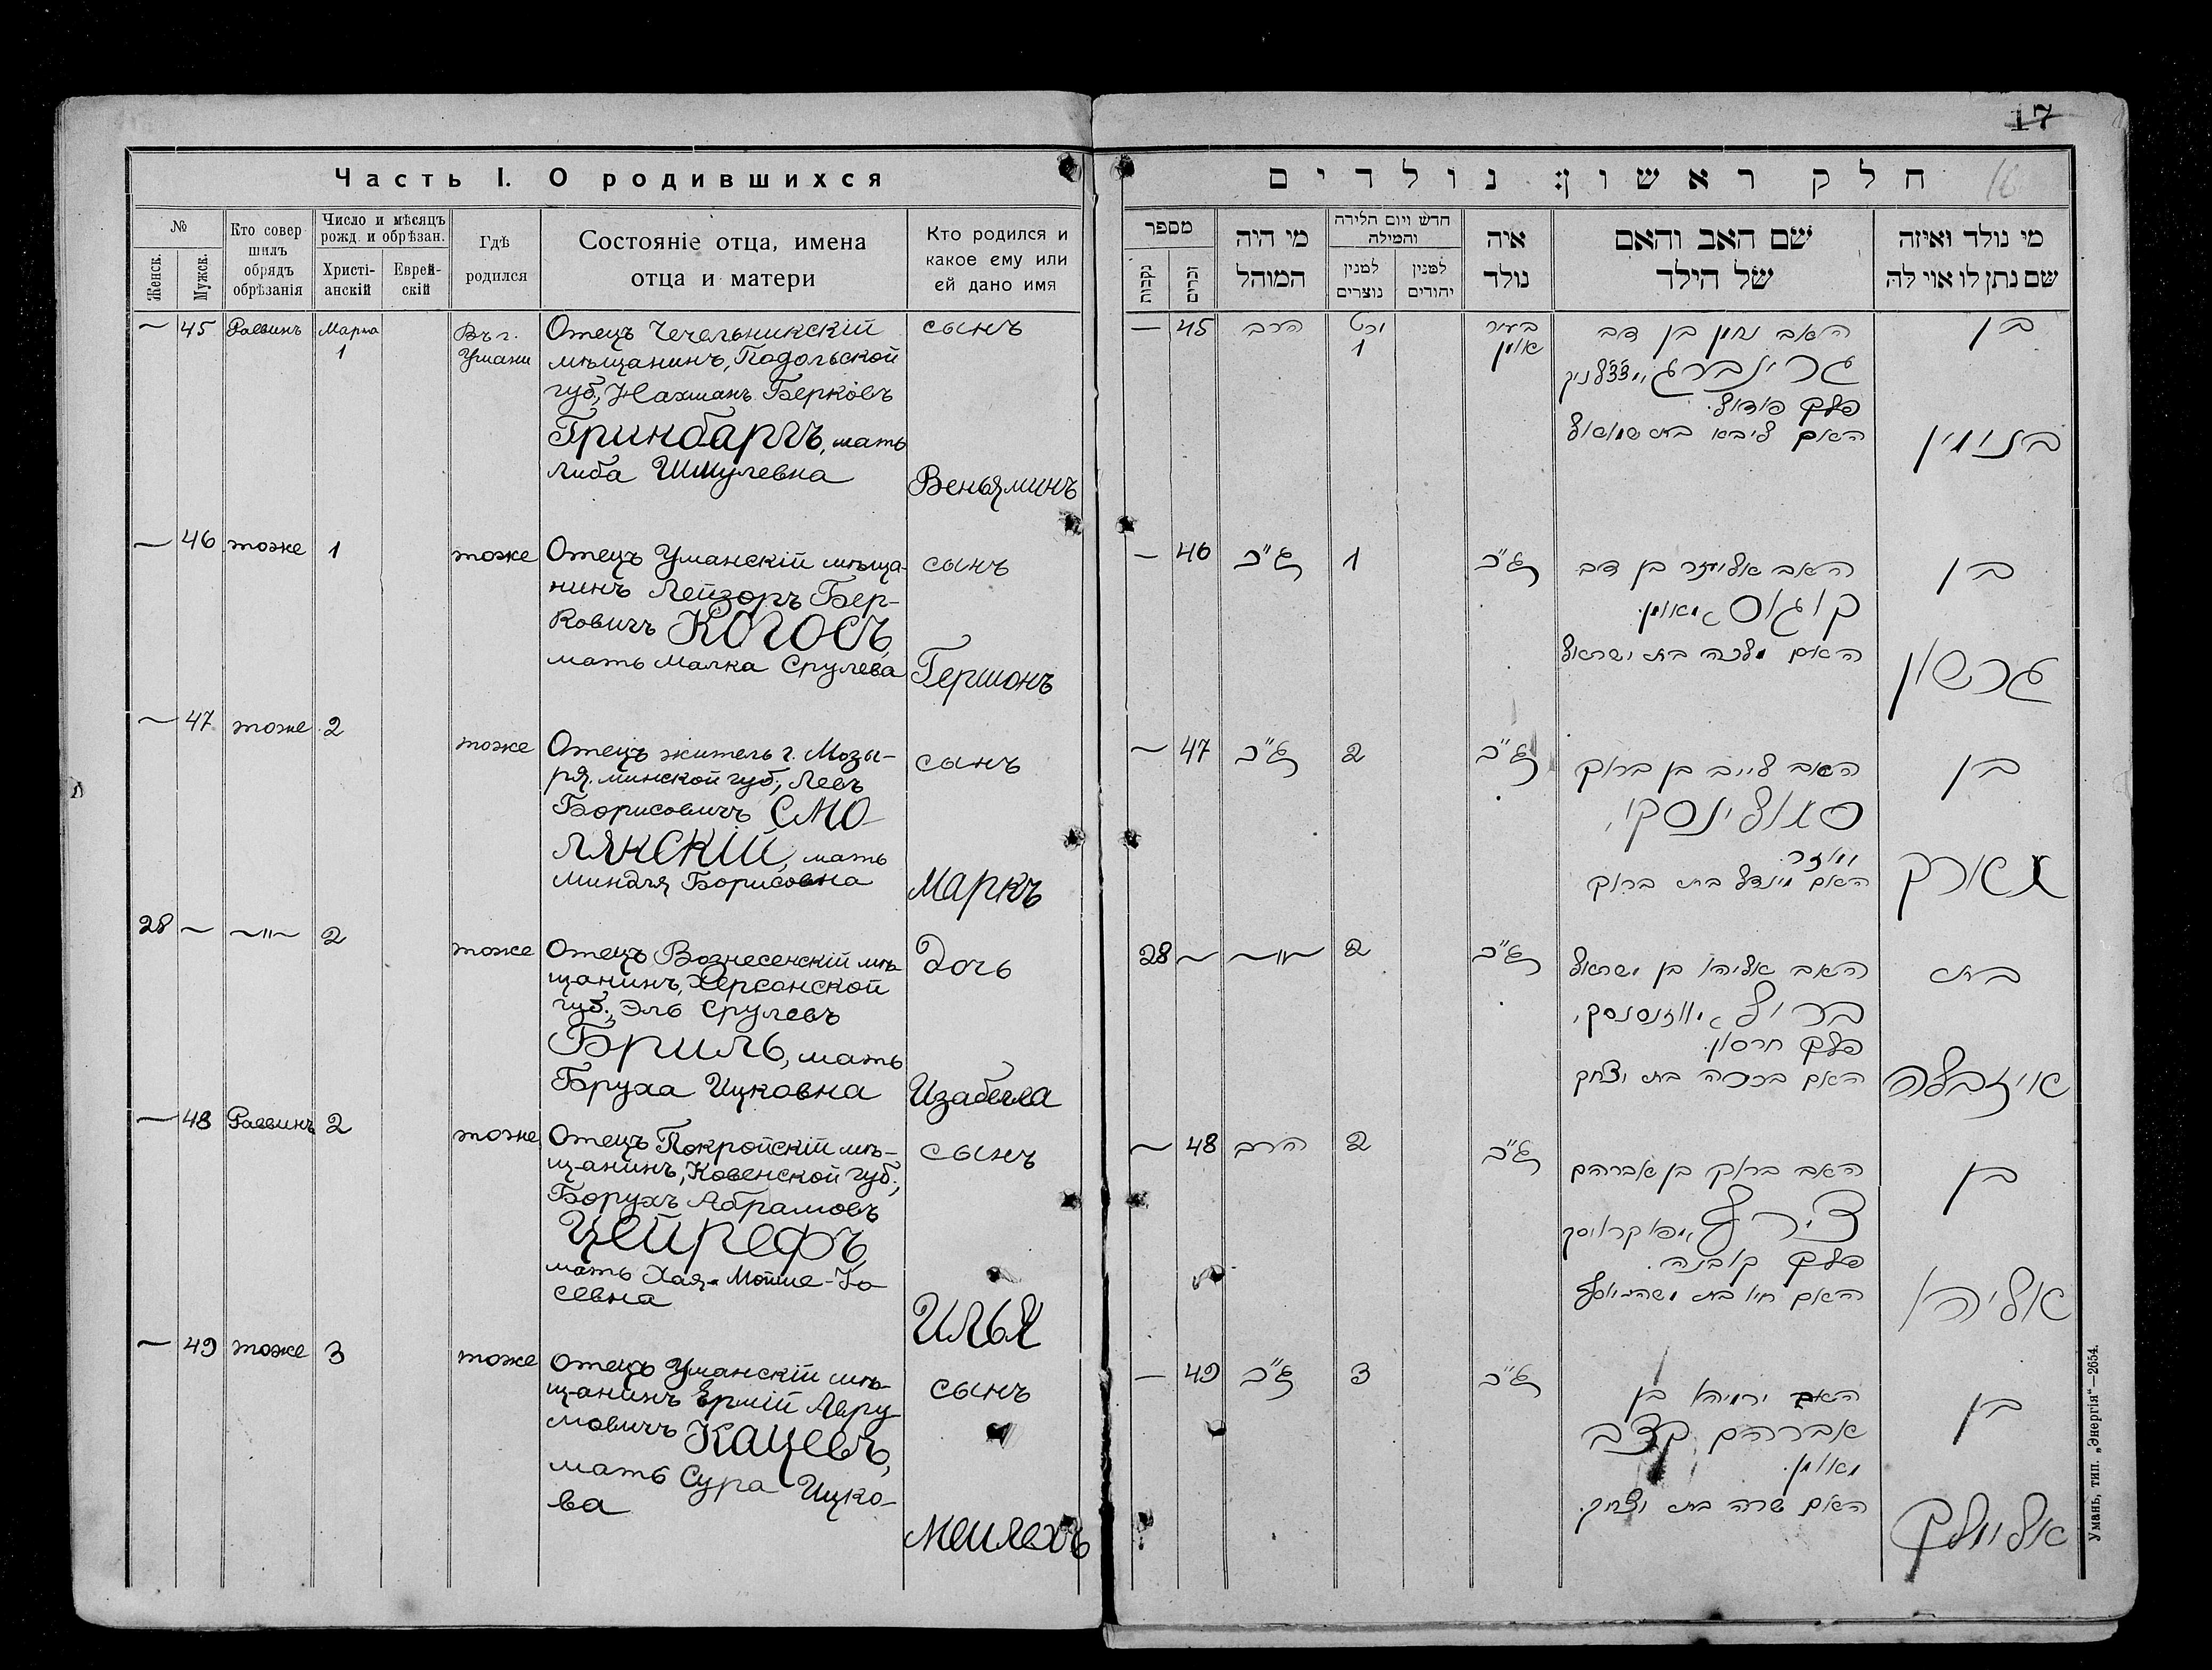 Часть I. О родившихся
№
Женск.
Мужск.
Кто совер
шилъ
обрядъ
обрѣзанія
Число и мѣсяцъ
рожд. и обрѣзан.
Христі-
анскій
Еврей-
скій
Гдѣ
родился
Состояніе отца, имена
отца и матери
Кто родился и
какое ему или
ей дано имя
— 45 Раввинъ Марта 1
Въ г.
Умани
Отецъ Чечельникскій
мѣщанинъ, Подольской
губ., Нахманъ Берковъ
Гринбаргъ, мать
Либа Шмулевна
сынъ
Веньяминъ
— 46 тоже 1 тоже
Отецъ Уманскій мѣща-
нинъ Лейзоръ Бер-
ковичъ Когосъ,
мать Малка Срулева
сынъ
Гершонъ
— 47 тоже 2 тоже
Отецъ житель г. Мозы-
ря, минской губ., Левъ
Борисовичъ Смо-
лянскій, мать
Миндля Борисовна
сынъ
Маркъ
28 — —"— 2 тоже
Отецъ Вознесенскій мѣ-
щанинъ, Херсонской
губ., Эль Срулевъ
Бриль, мать
Бруха Ицковна
Дочь
Изабелла
— 48 Раввинъ 2 тоже
Отецъ Покройскій мѣ-
щанинъ, Ковенской губ.,
Борухъ Абрамовъ
Цейрефъ,
мать Хая-Мойше-Іо
севна
сынъ
Илья
— 49 тоже 3 тоже
Отецъ Уманскій мѣ-
щанинъ Ермій Авру-
мовичъ Кацевъ,
мать Сура Ицко-
ва
сынъ
Мейлехъ
17
16
חלק ראשון: נולדים
מספר
נקבות
זכרים
מי היה
המוהל
חדש ויום הלידה
והמילה
למנין
נוצרים
למנין
יהודים
איה
נולד
שם האב והאם
של הילד
מי נולד ואיזה
שם נתן לו או לה
— 45 הרב
1
בעיר
אומן
האב נחמן בן דב
גרינברג
פלך פודול.
האם ליבא בת שמואל
בן
בנימין
— 46 ג"כ 1 ג"כ
האב אליעזר בן דב
קוגוס מאומן.
האם מלכה בת ישראל
בן
גרשון
— 47 ג"כ 2 ג"כ
האב לייב בן ברוך
סמולינסקי,
האם מינדל בת ברוך
בן
מארק
28 — —"— 2 ג"כ
האב אליהו בן ישראל
בריל
פלך חרסון.
האם ברכה בת יצחק
בת
איזבלה
— 48 הרב 2 ג"כ
האב ברוך בן אברהם
פלך קובנה.
בן
אליהו
— 49 ג"כ 3 ג"כ
האב ירמיהו בן
אברהם קצב
מאומן.
האם שרה בת יצחק.
בן
אלימלך
Умань, тип. „Энергія“—2654.